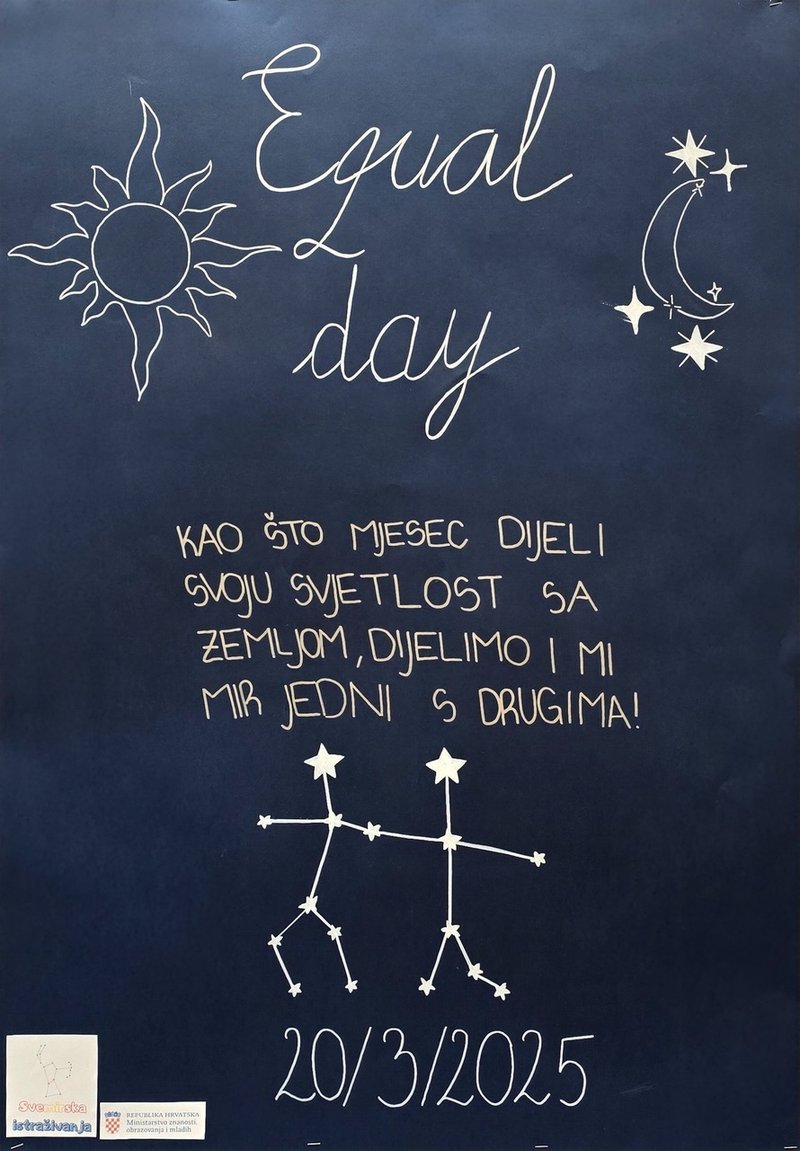 Equal
day
KAO ŠTO MJESEC DIJELI
SVOJU SVJETLOST SA
ZEMLJOM, DIJELIMO I MI
MIR JEDNI S DRUGIMA!
20/3/2025
Svemirska
istraživanja
REPUBLIKA HRVATSKA
Ministarstvo znanosti,
obrazovanja i mladih